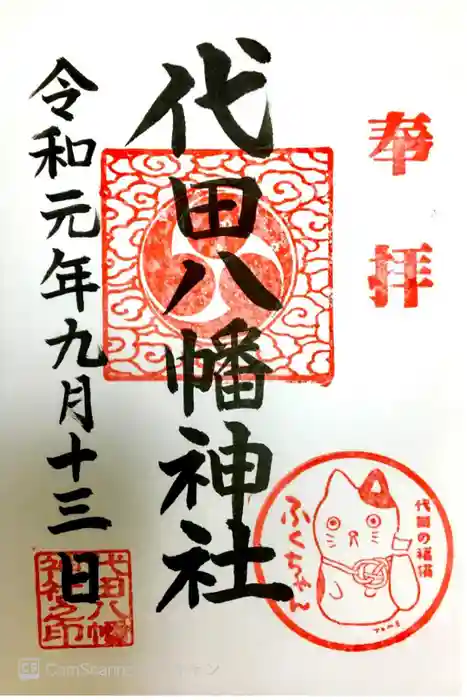 奉拝
代田八幡神社
令和元年九月十三日
代田八幡
神社之印
代田の猫備
ふくちゃん
CS CamScannerでスキャン